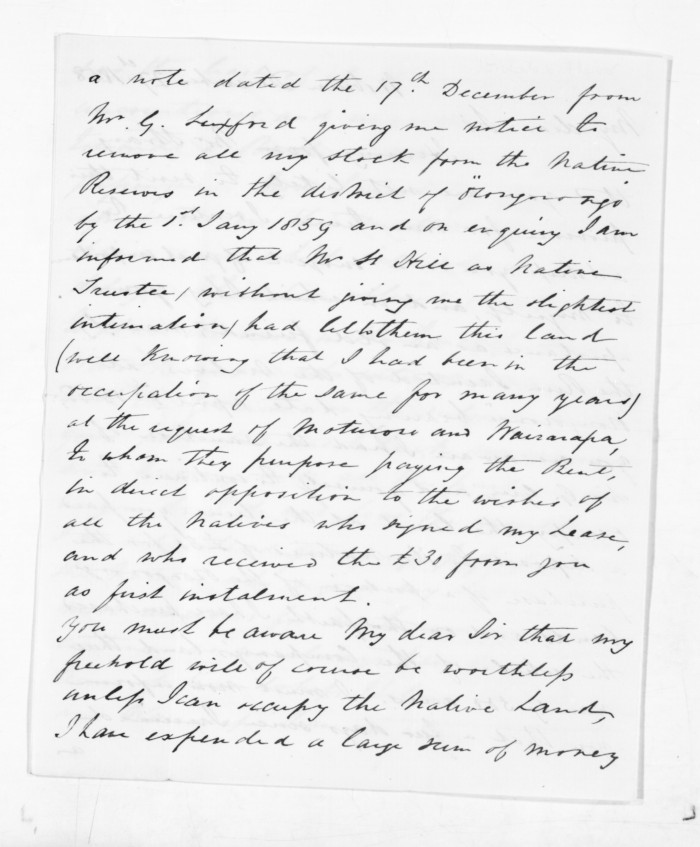 a note dated the 17th. December from
Mr. G. Luxford giving me notice to
remove all my stock from the Native
Reserves in the district of Orongorongo
by the 1st. Jany 1859 and on enquiry I am
informed that Mr St Hill as Native
Trustee, (without giving me the slightest
intimation) had let to them this land
(well knowing that I had been in the
occupation of the same for many years)
at the request of and Wairarapa,
to whom they purpose paying the Rent,
in direct opposition to the wishes of
all the Natives who signed my Lease,
and who received the £30 from you
as first instalment.
You must be aware My dear Sir that my
freehold will of course be worthless
unless I can occupy the Native Land,
I have expended a large sum of money